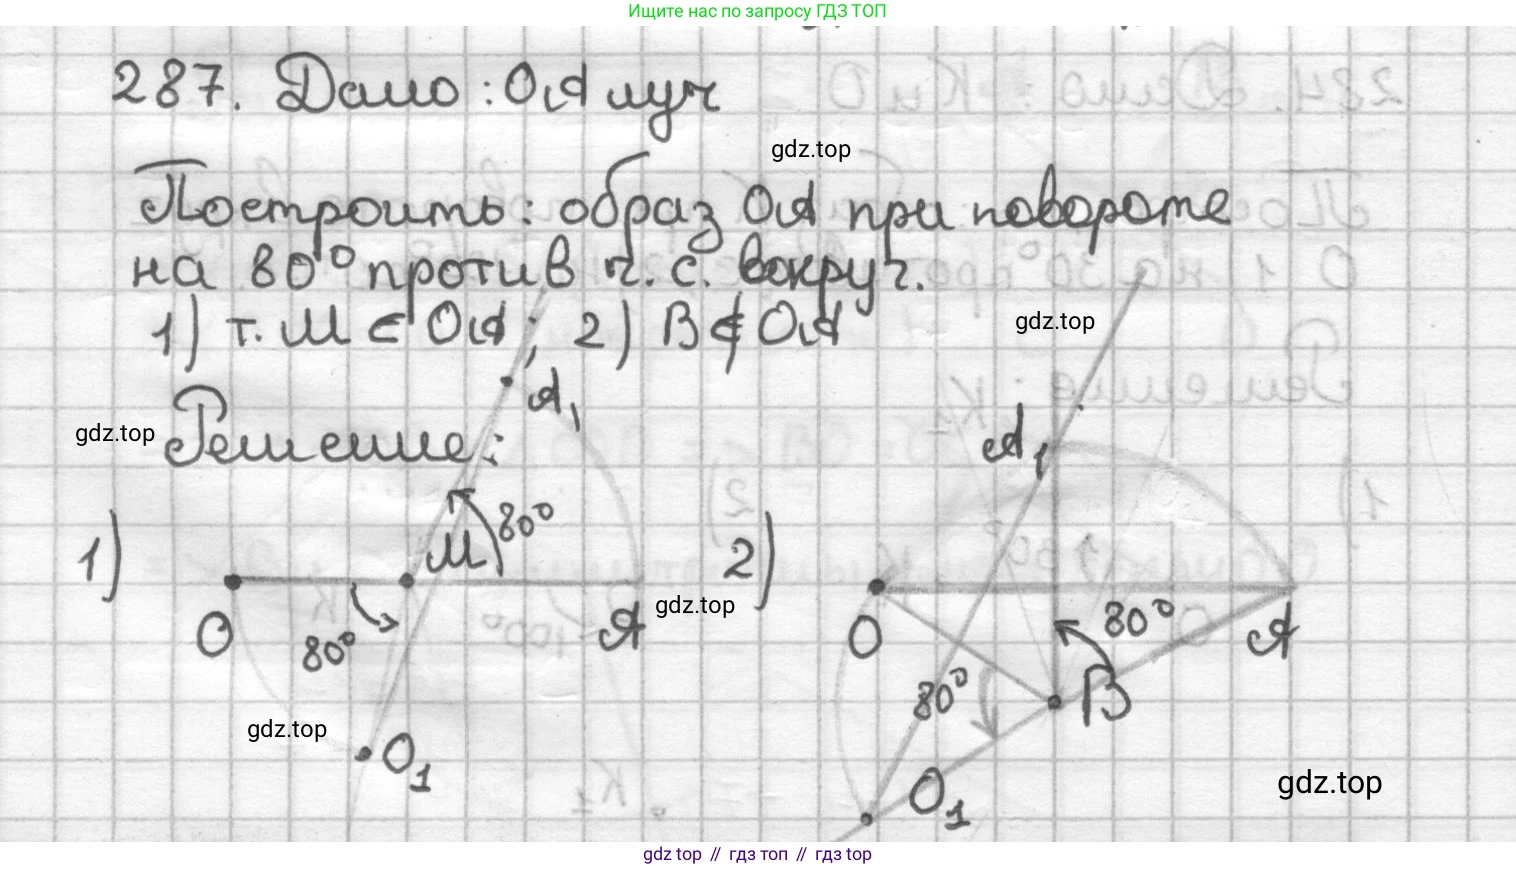 Ищите нас по запросу ГДЗ ТОП
287. Дано: OA луч
gdz.top
Построить: образ OA при повороте
на 80° против ч.с. вокруг.
1) т. M ∈ OA; 2) B ∉ OA
gdz.top
gdz.top
Решение:
A₁
A₁
1)
M
80°
2)
80°
O
80°
A
gdz.top
O
80°
B
A
gdz.top
O₁
O₁
gdz.top
gdz top // гдз топ // гдз top